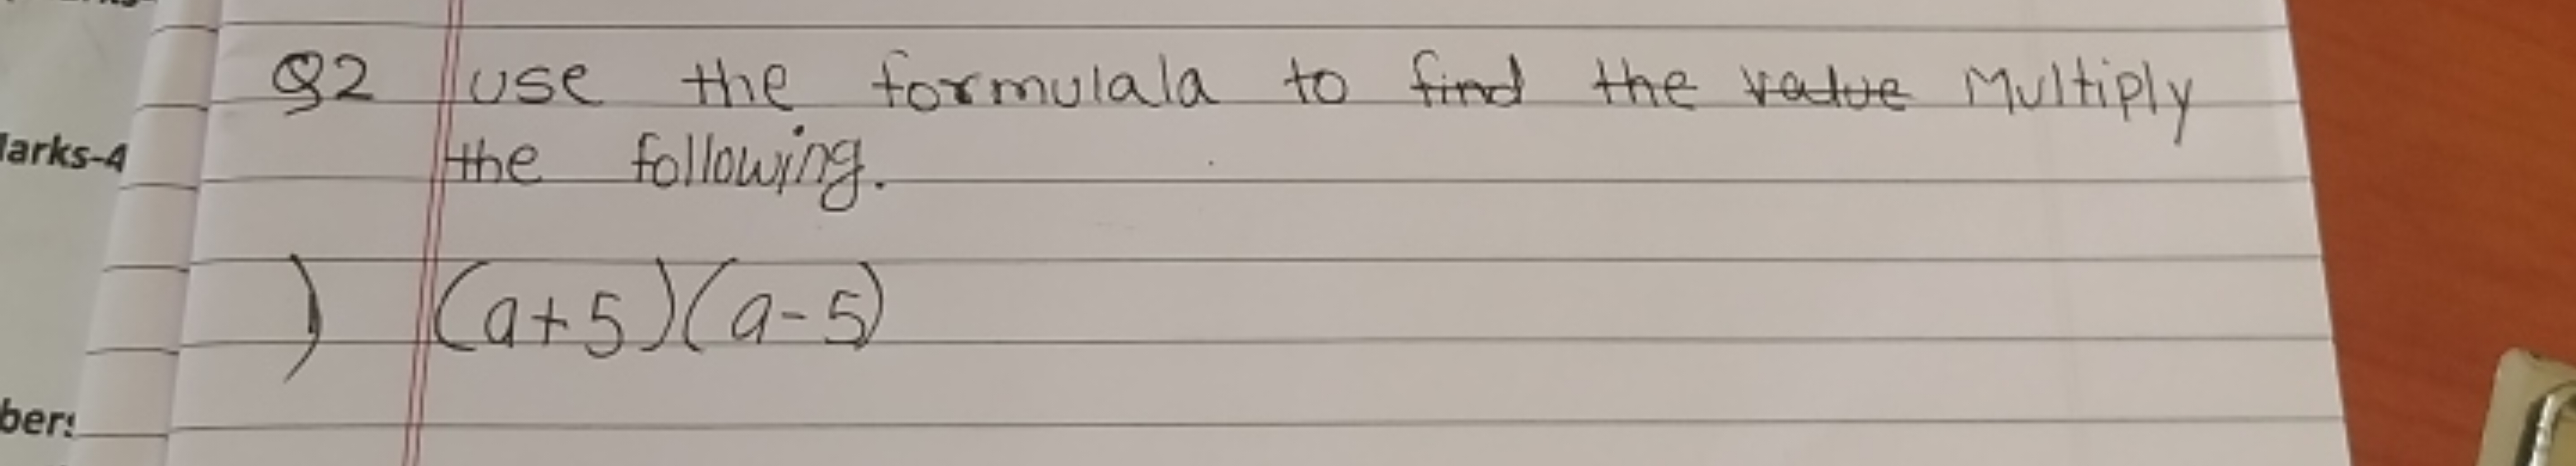 larks-4
bers
Q2 use the formulala to find the value Multiply
the following.
) (a+5)(a-5)